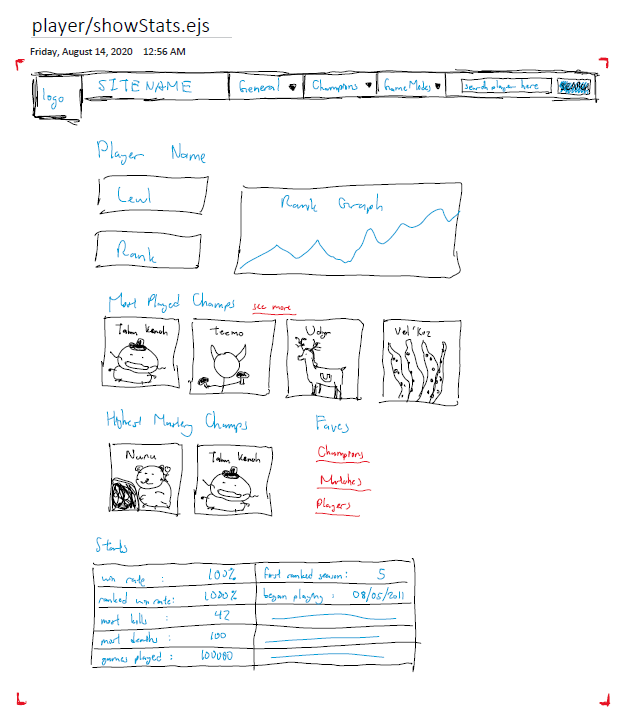 player/showStats.ejs
Friday, August 14, 2020 12:56 AM
logo SITENAME General Champions Game Modes search player here SEARCH
Player Name
Level
Rank Graph
Rank
Most Played Champs see more
Tahm Kench Teemo Udyr Vel'Koz
Highest Mastery Champs Faves
Nunu Tahm Kench Champions
Matches
Players
Stats
win rate : 100% first ranked season: 5
ranked win rate: 1000% began playing : 08/05/2011
most kills : 42
most deaths : 100
games played : 100000